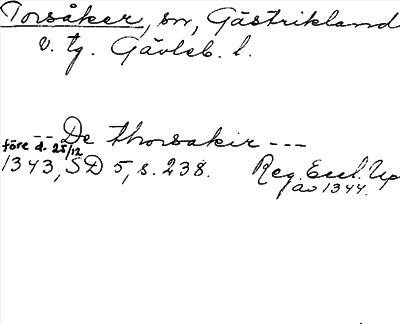 Torsåker, sn, Gästrikland
v. tg. Gävleb. l.
-- De thorsakir ---
före d. 25/12
1343, SD 5, s. 238. Reg. Eccl. Up
av 1344.